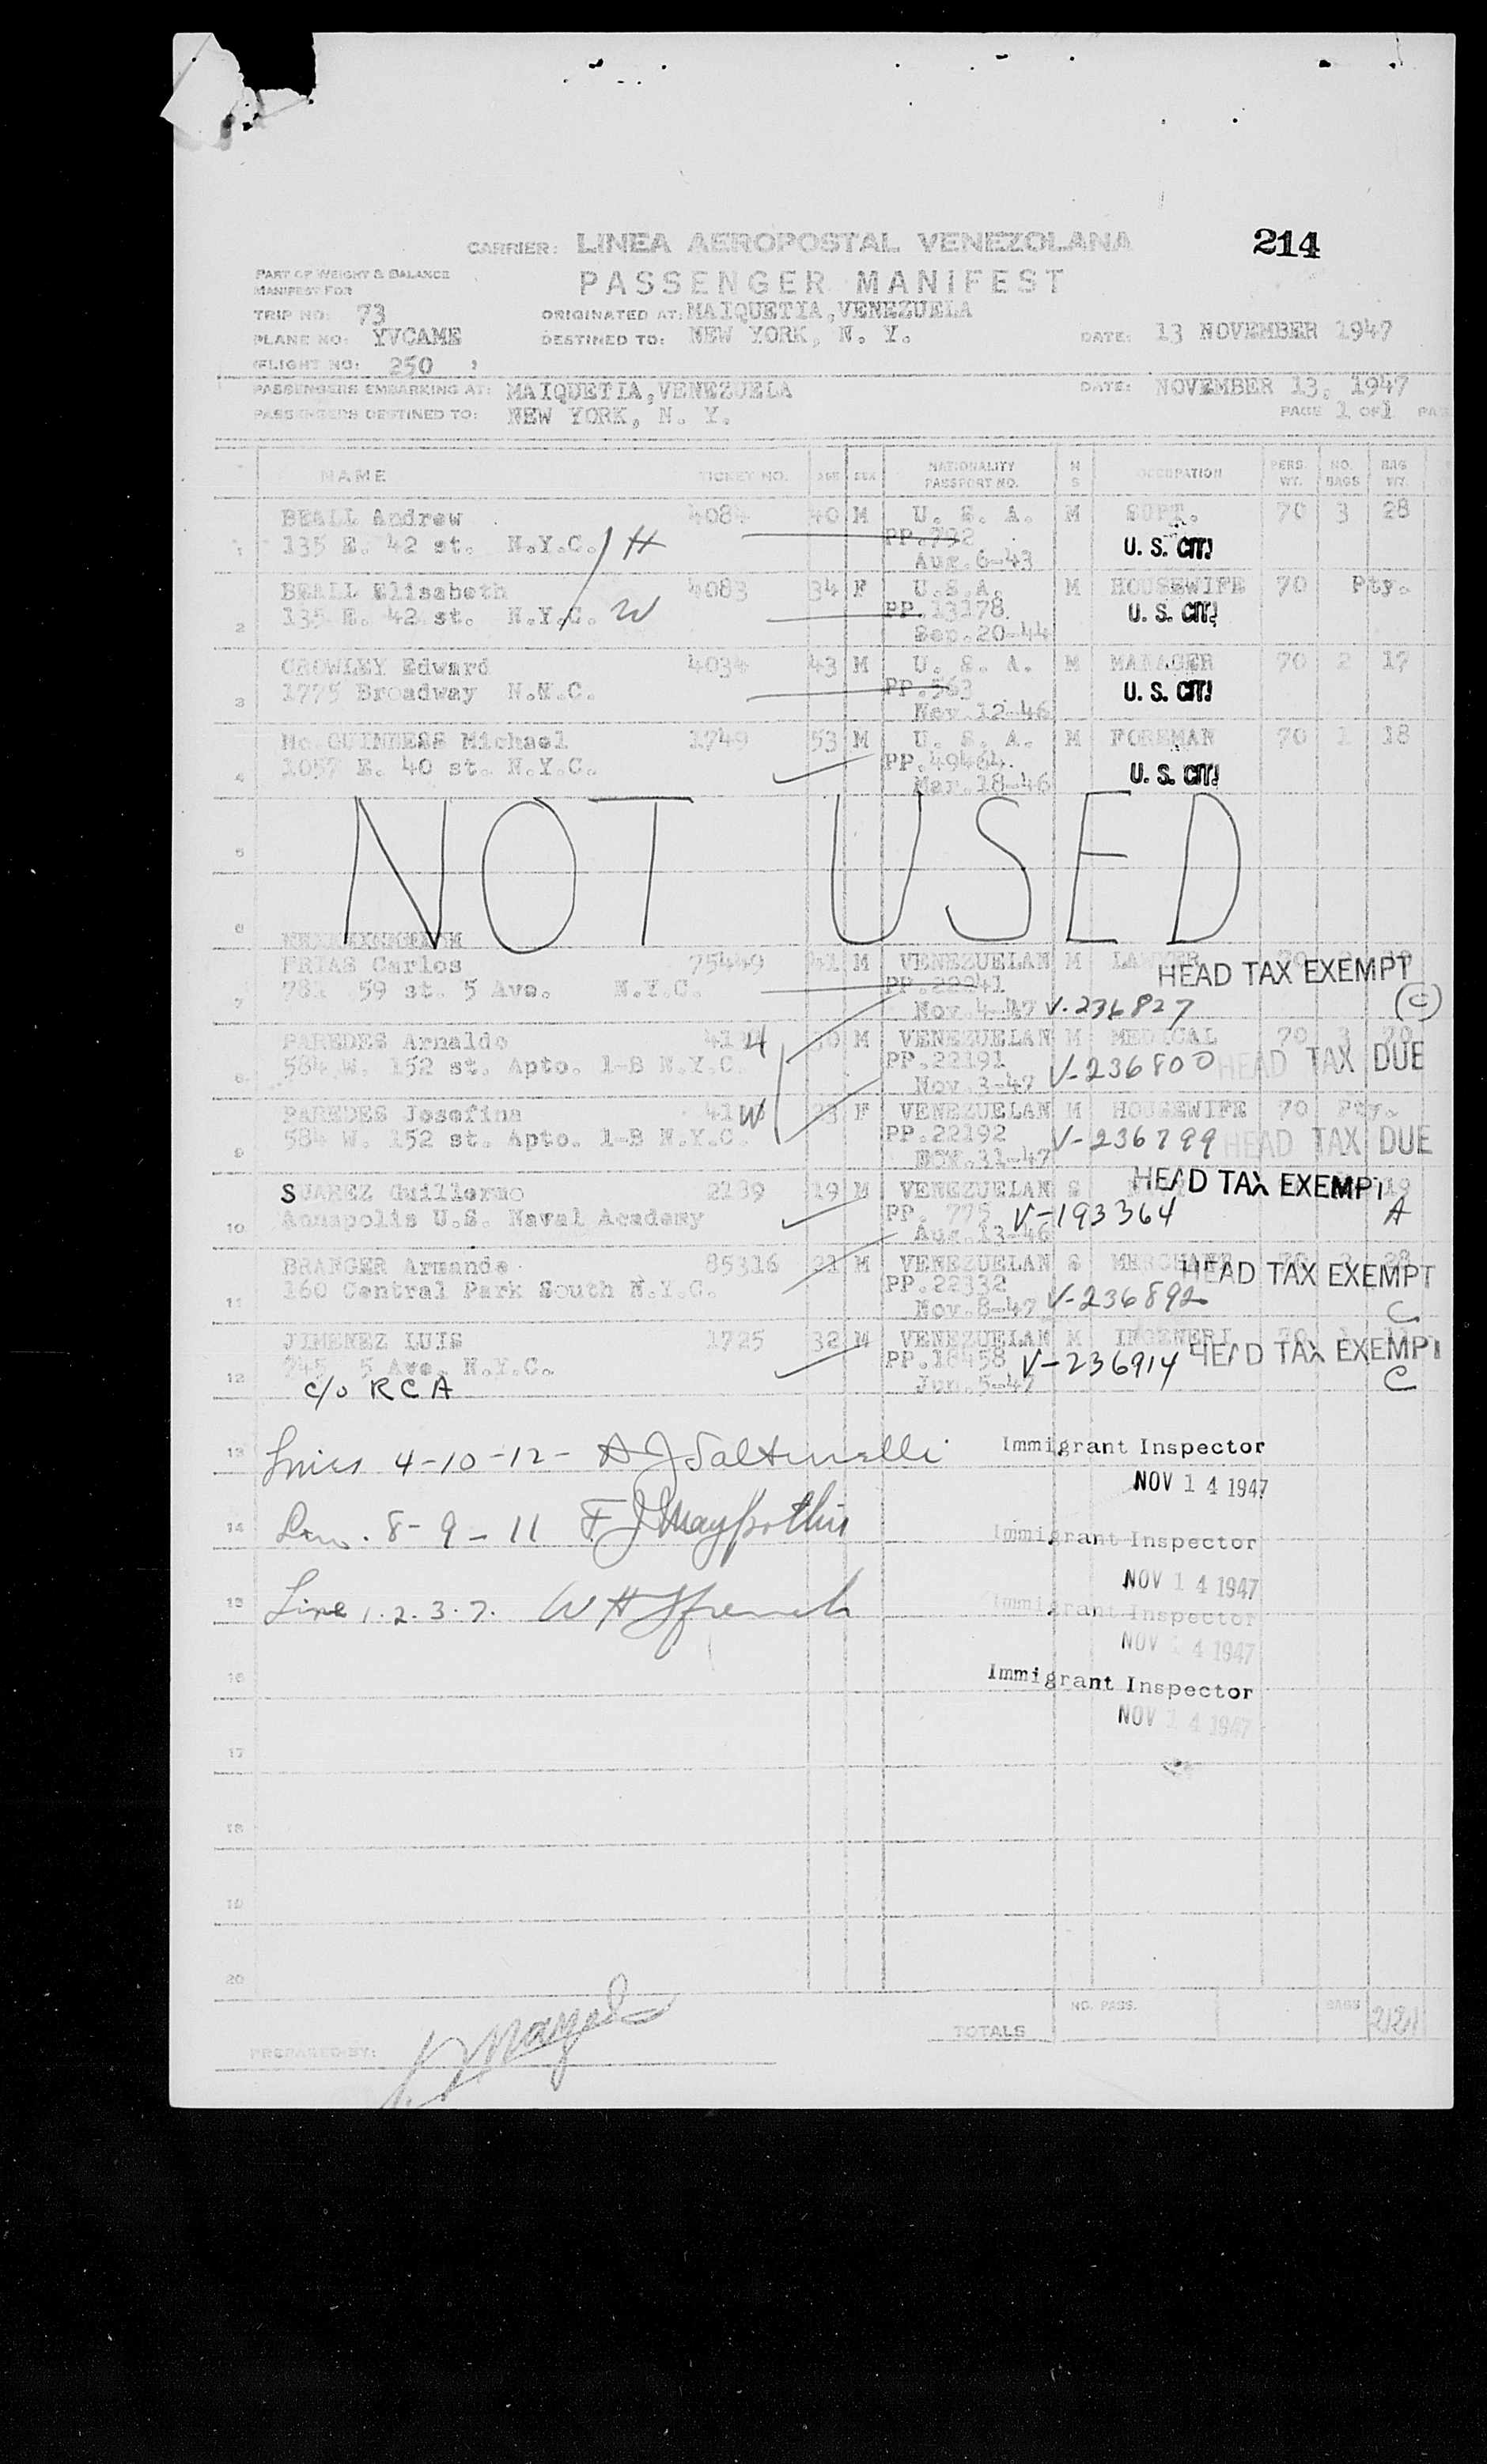 CARRIER: LINEA AEROPOSTAL VENEZOLANA
214
PART OF WEIGHT & BALANCE
MANIFEST FOR
PASSENGER MANIFEST
TRIP NO: 73 ORIGINATED AT: MAIQUETIA, VENEZUELA
PLANE NO: YVCAME DESTINED TO: NEW YORK, N. Y. DATE: 13 NOVEMBER 1947
(FLIGHT NO: 250 )
PASSENGERS EMBARKING AT: MAIQUETIA, VENEZUELA DATE: NOVEMBER 13, 1947
PASSENGERS DESTINED TO: NEW YORK, N. Y. PAGE 1 OF 1
NAME TICKET NO. AGE SEX NATIONALITY PASSPORT NO. M S OCCUPATION PERS. WT. NO. BAGS BAG WT.
BEALL Andrew 4084 40 M U. S. A. M SUPT. 70 3 28
1 135 E. 42 st. N.Y.C. H PP.792 U. S. CIT.
Aug. 6-43
BEALL Elisabeth 4083 34 F U.S.A. M HOUSEWIFE 70 Pty.
2 135 E. 42 st. N.Y.C. W PP.13178 U. S. CIT.
Sep.20-44
CROWLEY Edward 4034 43 M U. S. A. M MANAGER 70 2 17
3 1775 Broadway N.Y.C. PP.563 U. S. CIT.
Nov.12-46
Mc GUINNESS Michael 1749 53 M U. S. A. M FOREMAN 70 1 18
4 1057 E. 40 st. N.Y.C. PP.49464. U. S. CIT.
Mar.18-46
NOT USED
5
6
FRIAS Carlos 75449 41 M VENEZUELAN M LAWYER
HEAD TAX EXEMPT
7 59 st. 5 Ave. N.Y.C. PP.22241
Nov. 4-47 V-236827 (C)
PAREDES Arnaldo H M VENEZUELAN M MEDICAL 70 3 70
8 584 W. 152 st. Apto. 1-B N.Y.C. PP.22191
Nov.3-47 V-236800 HEAD TAX DUE
PAREDES Josefina W 23 F VENEZUELAN M HOUSEWIFE 70 Pty.
9 584 W. 152 st. Apto. 1-B N.Y.C. PP.22192 V-236799 HEAD TAX DUE
SUAREZ Guillermo 2189 19 M VENEZUELAN S HEAD TAX EXEMPT 19
10 Annapolis U.S. Naval Academy PP. 775 V-193364 A
Aug.13-46
BRANGER Armando 85316 21 M VENEZUELAN S MERCHANT HEAD TAX EXEMPT
11 160 Central Park South N.Y.C. PP.22332
Nov.8-47 V-236892 C
JIMENEZ LUIS 1725 32 M VENEZUELAN M INGENERI HEAD TAX EXEMPT
12 745 5 Ave. N.Y.C. PP.18458 V-236914 C
c/o RCA Jun.5-47
13 Lines 4-10-12- Immigrant Inspector
NOV 14 1947
14 8-9-11 Immigrant Inspector
NOV 14 1947
15 Line 1.2.3.7. W H French Immigrant Inspector
NOV 14 1947
16 Immigrant Inspector
NOV 14 1947
17
18
19
20
NO. PASS. BAGS
TOTALS
PREPARED BY: